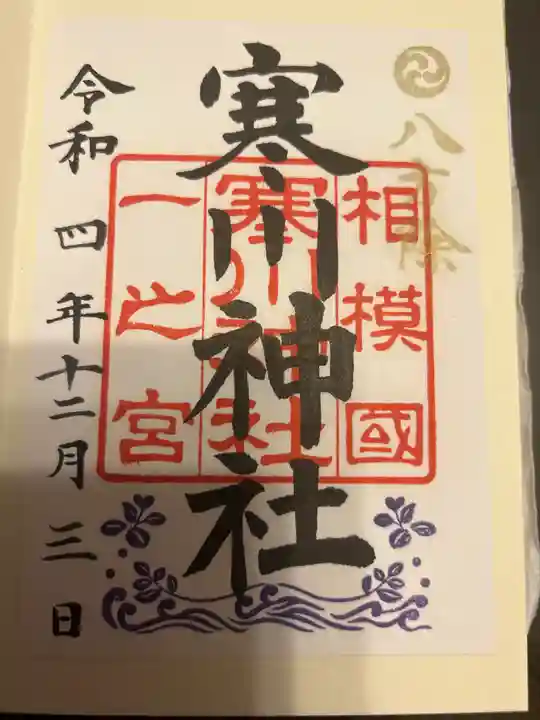 八方除
相模國
寒川神社
一之宮
寒川神社
令和四年十二月三日